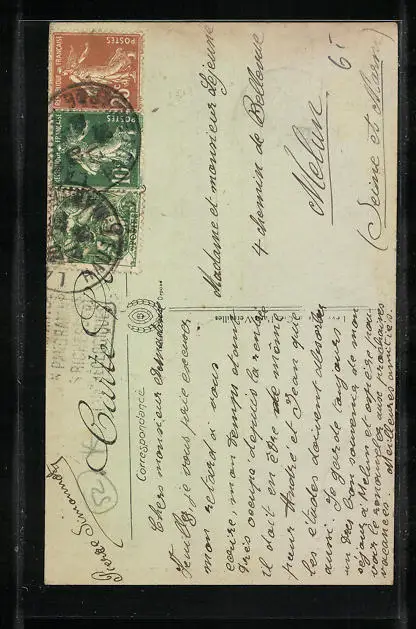 Carte Postale
Correspondance
Chers monsieur et madame
Veuillez je vous prie excuser
mon retard à vous
écrire, mon temps étant
très occupé depuis la rentrée
il doit en être de même
pour André et Jean que
les études doivent absorber
aussi. Je garde toujours
un très bon souvenir de mon
séjour à Melun et espère pou-
voir le renouveler aux prochaines
vacances. Meilleures amitiés.
Madame et monsieur Lejeune
4 chemin de Bellevue
Melun
(Seine et Marne)
POSTES
REPUBLIQUE FRANÇAISE
POSTES
REPUBLIQUE FRANÇAISE
10
Versailles